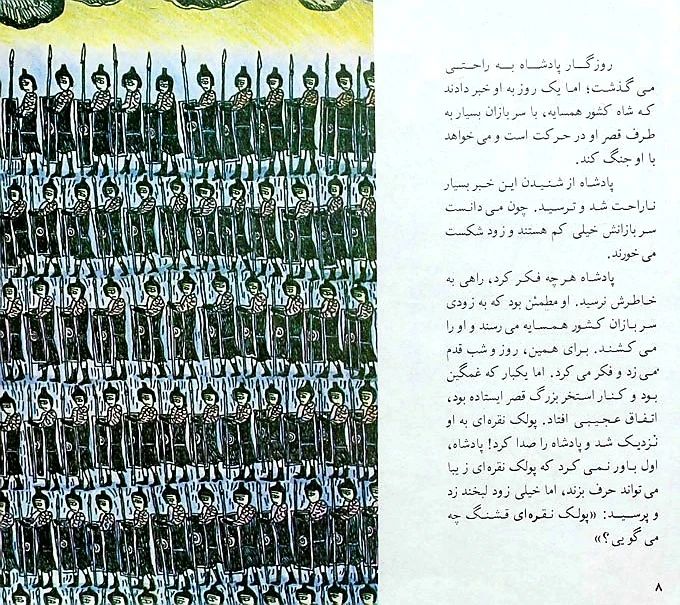 روزگار پادشاه به راحتی
می گذشت؛ اما یک روز به او خبر دادند
که شاه کشور همسایه، با سربازان بسیار به
طرف قصر او در حرکت است و می خواهد
با او جنگ کند.
پادشاه از شنیدن این خبر بسیار
ناراحت شد و ترسید. چون می دانست
سربازانش خیلی کم هستند و زود شکست
می خورند.
پادشاه هر چه فکر کرد، راهی به
خاطرش نرسید. او مطمئن بود که به زودی
سربازان کشور همسایه می رسند و او را
می کشند. برای همین، روز و شب قدم
می زد و فکر می کرد. اما یکبار که غمگین
بود و کنار استخر بزرگ قصر ایستاده بود،
اتفاق عجیبی افتاد. پولک نقره ای به او
نزدیک شد و پادشاه را صدا کرد! پادشاه،
اول باور نمی کرد که پولک نقره ای زیبا
می تواند حرف بزند، اما خیلی زود لبخند زد
و پرسید: «پولک نقره ای قشنگ چه
می گویی؟»
۸